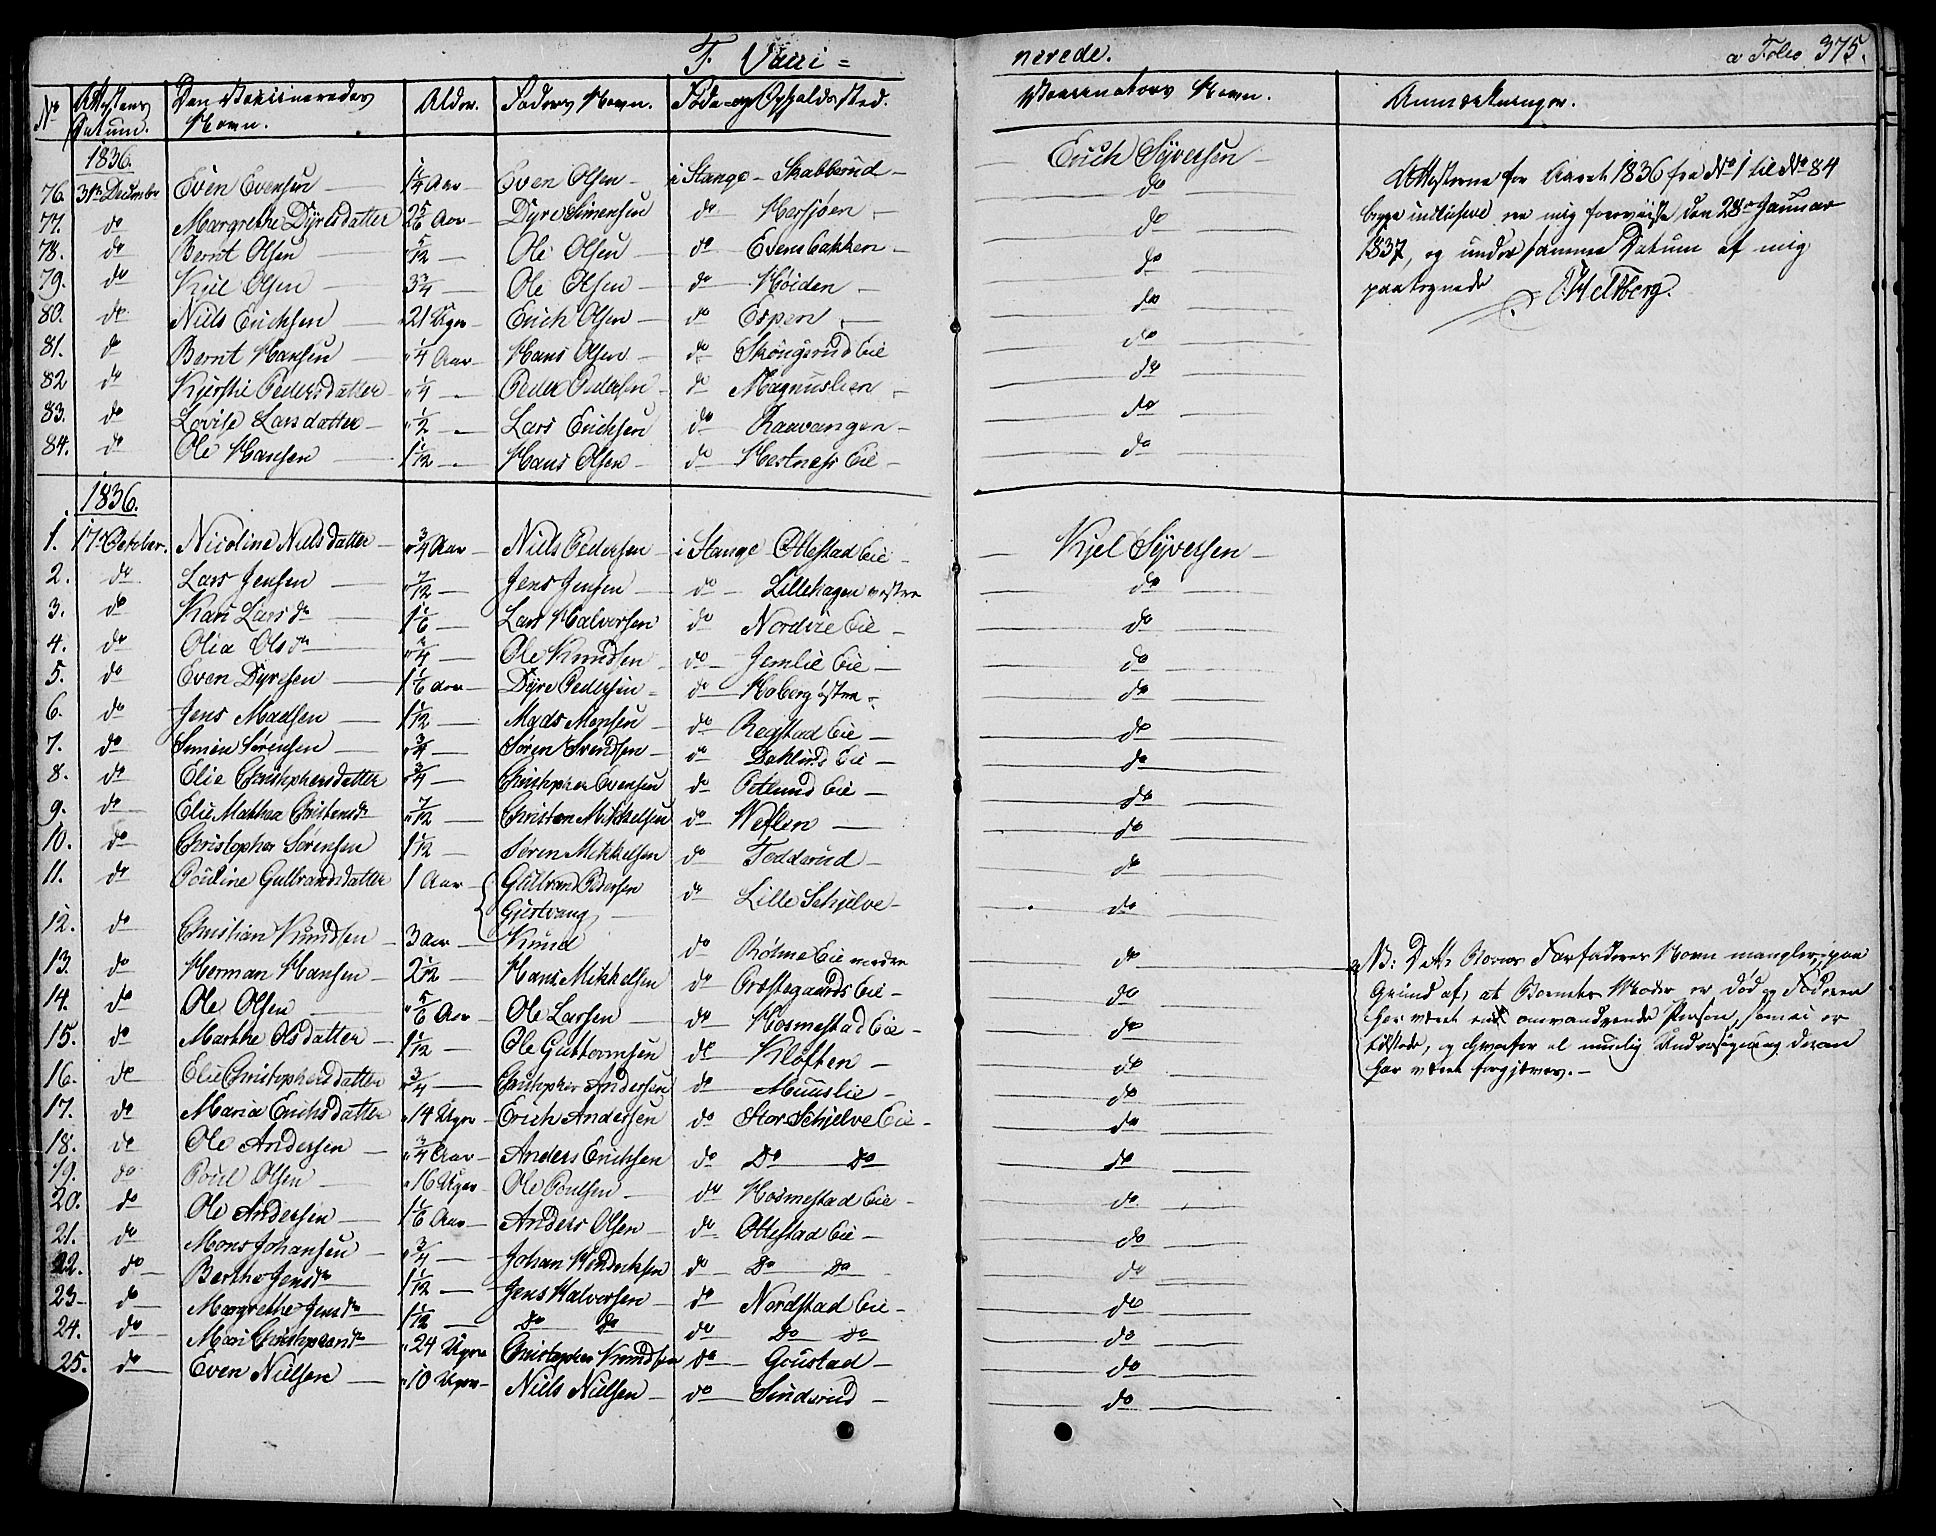 F. Vacci= nerede. a Folio 375.
No Attestens Datum. Den Vaccineredes Navn. Alder. Faders Navn. Føde- og Opholds-Sted. Vaccinateurs Navn. Anmærkninger.
1836.
76. 31te December Even Evensen 1 1/4 Aar Even Olsen i Stange Skabberud Erich Syversen
77. do Margrethe Dyresdatter 2 5/6 Aar Dyre Simensen do Hersjøen do
78. do Bernt Olsen 5/12 Ole Olsen do Evensbakken do
79. do Kjel Olsen 3 3/4 Ole Olsen do Høiden do
80. do Niels Erichsen 21 Uger Erich Olsen do Espen do
81. do Bernt Hansen 1/4 Aar Hans Olsen do Skøngsrud Eie do
82. do Kjersti Pedersdatter 1/4 Peder Pedersen do Magnuslien do
83. do Lovise Larsdatter 1/2 Lars Erichsen do Raavangen do
84. do Ole Hansen 1 1/12 Hans Olsen do Hestness Eie do
Attesterne for Aaret 1836 fra No 1 til No 84
begge inclusive ere mig foreviiste den 28de Januar
1837, og under samme Datum af mig
paategnede
1836.
1. 17 October. Nicoline Nielsdatter 3/4 Aar Niels Pedersen i Stange Ottestad Eie Kjel Syversen
2. do Lars Jensen 7/12 Jens Jensen do Lillehagen vestre do
3. do Kari Larsdr 1 1/6 Lars Halvorsen do Nordvie Eie do
4. do Olia Olsdr 3/4 Ole Knudsen do Jemlie Eie do
5. do Even Dyresen 1 1/6 Aar Dyre Pedersen do Hoberg østre do
6. do Jens Madsen 1 1/12 Mads Monsen do Rogstad Eie do
7. do Simen Sørensen 3/4 Søren Svendsen do Dahlbye Eie do
8. do Elie Christophersdatter 3/4 Christopher Evensen do Oetlund Eie do
9. do Elie Mathea Christensdr 7/12 Christen Mikkelsen do Weflen do
10. do Christopher Sørensen 1 1/12 Søren Mikkelsen do Todderud do
11. do Pouline Gulbrandsdatter 1 Aar Gulbrand Pedersen Gjestvang do Lille Schjelve do
12. do Christian Knudsen 3 Aar Knud do Bøhme Eie nordre do
13. do Herman Hansen 2 1/12 Hans Mikkelsen do Præstegaards Eie do
14. do Ole Olsen 5/6 Aar Ole Larsen do Hosmestad Eie do
15. do Marthe Olsdatter 1 1/12 Ole Guttormsen do Kløften do
16. do Elie Christophersdatter 3/4 Christopher Andersen do Muuslie do
17. do Maria Erichsdatter 14 Uger Erich Andersen do Stor-Schjelve Eie do
18. do Ole Andersen 3/4 Aar Anders Erichsen do Do Do do
19. do Poul Olsen 16 Uger Ole Poulsen do Hosmestad Eie do
20. do Ole Andersen 1 1/6 Aar Anders Olsen do Ottestad Eie do
21. do Mons Johansen 3/4 Johan Hendrichsen do Do Do do
22. do Berthe Jensdr 1 1/12 Jens Halvorsen do Nordstad Eie do
23. do Margrethe Jensdr 1 1/12 Do Do do Do Do do
24. do Mari Christophersdr 24 Uger Christopher Knudsen do Goustad do
25. do Even Nielsen 10 Uger Niels Nielsen do Sindsrud do
NB: Dette Barns Farfaders Navn mangler, paa
Grund af, at Barnets Moder er død og Faderen
har været en omvandrende Person, som ei er
tilstede, og hvorfor al muelig Undersøgning deraf
har været forgjæves.